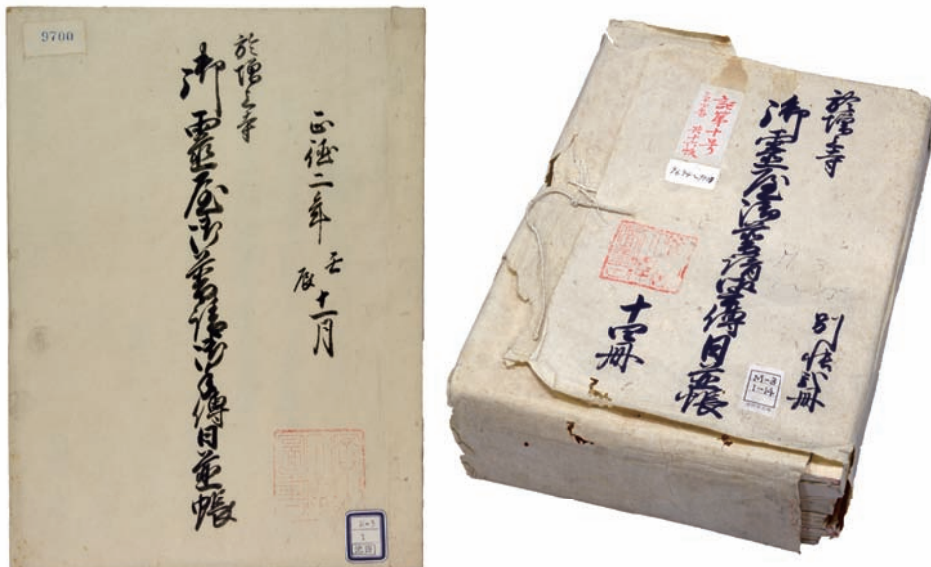 9700
正徳二年 壬辰 十一月
於増上寺
御霊屋御普請御手傳日並帳
別帳弐冊
於増上寺
御霊屋御普請御手傳日並帳
十四冊
記第十号
M-3
1-14